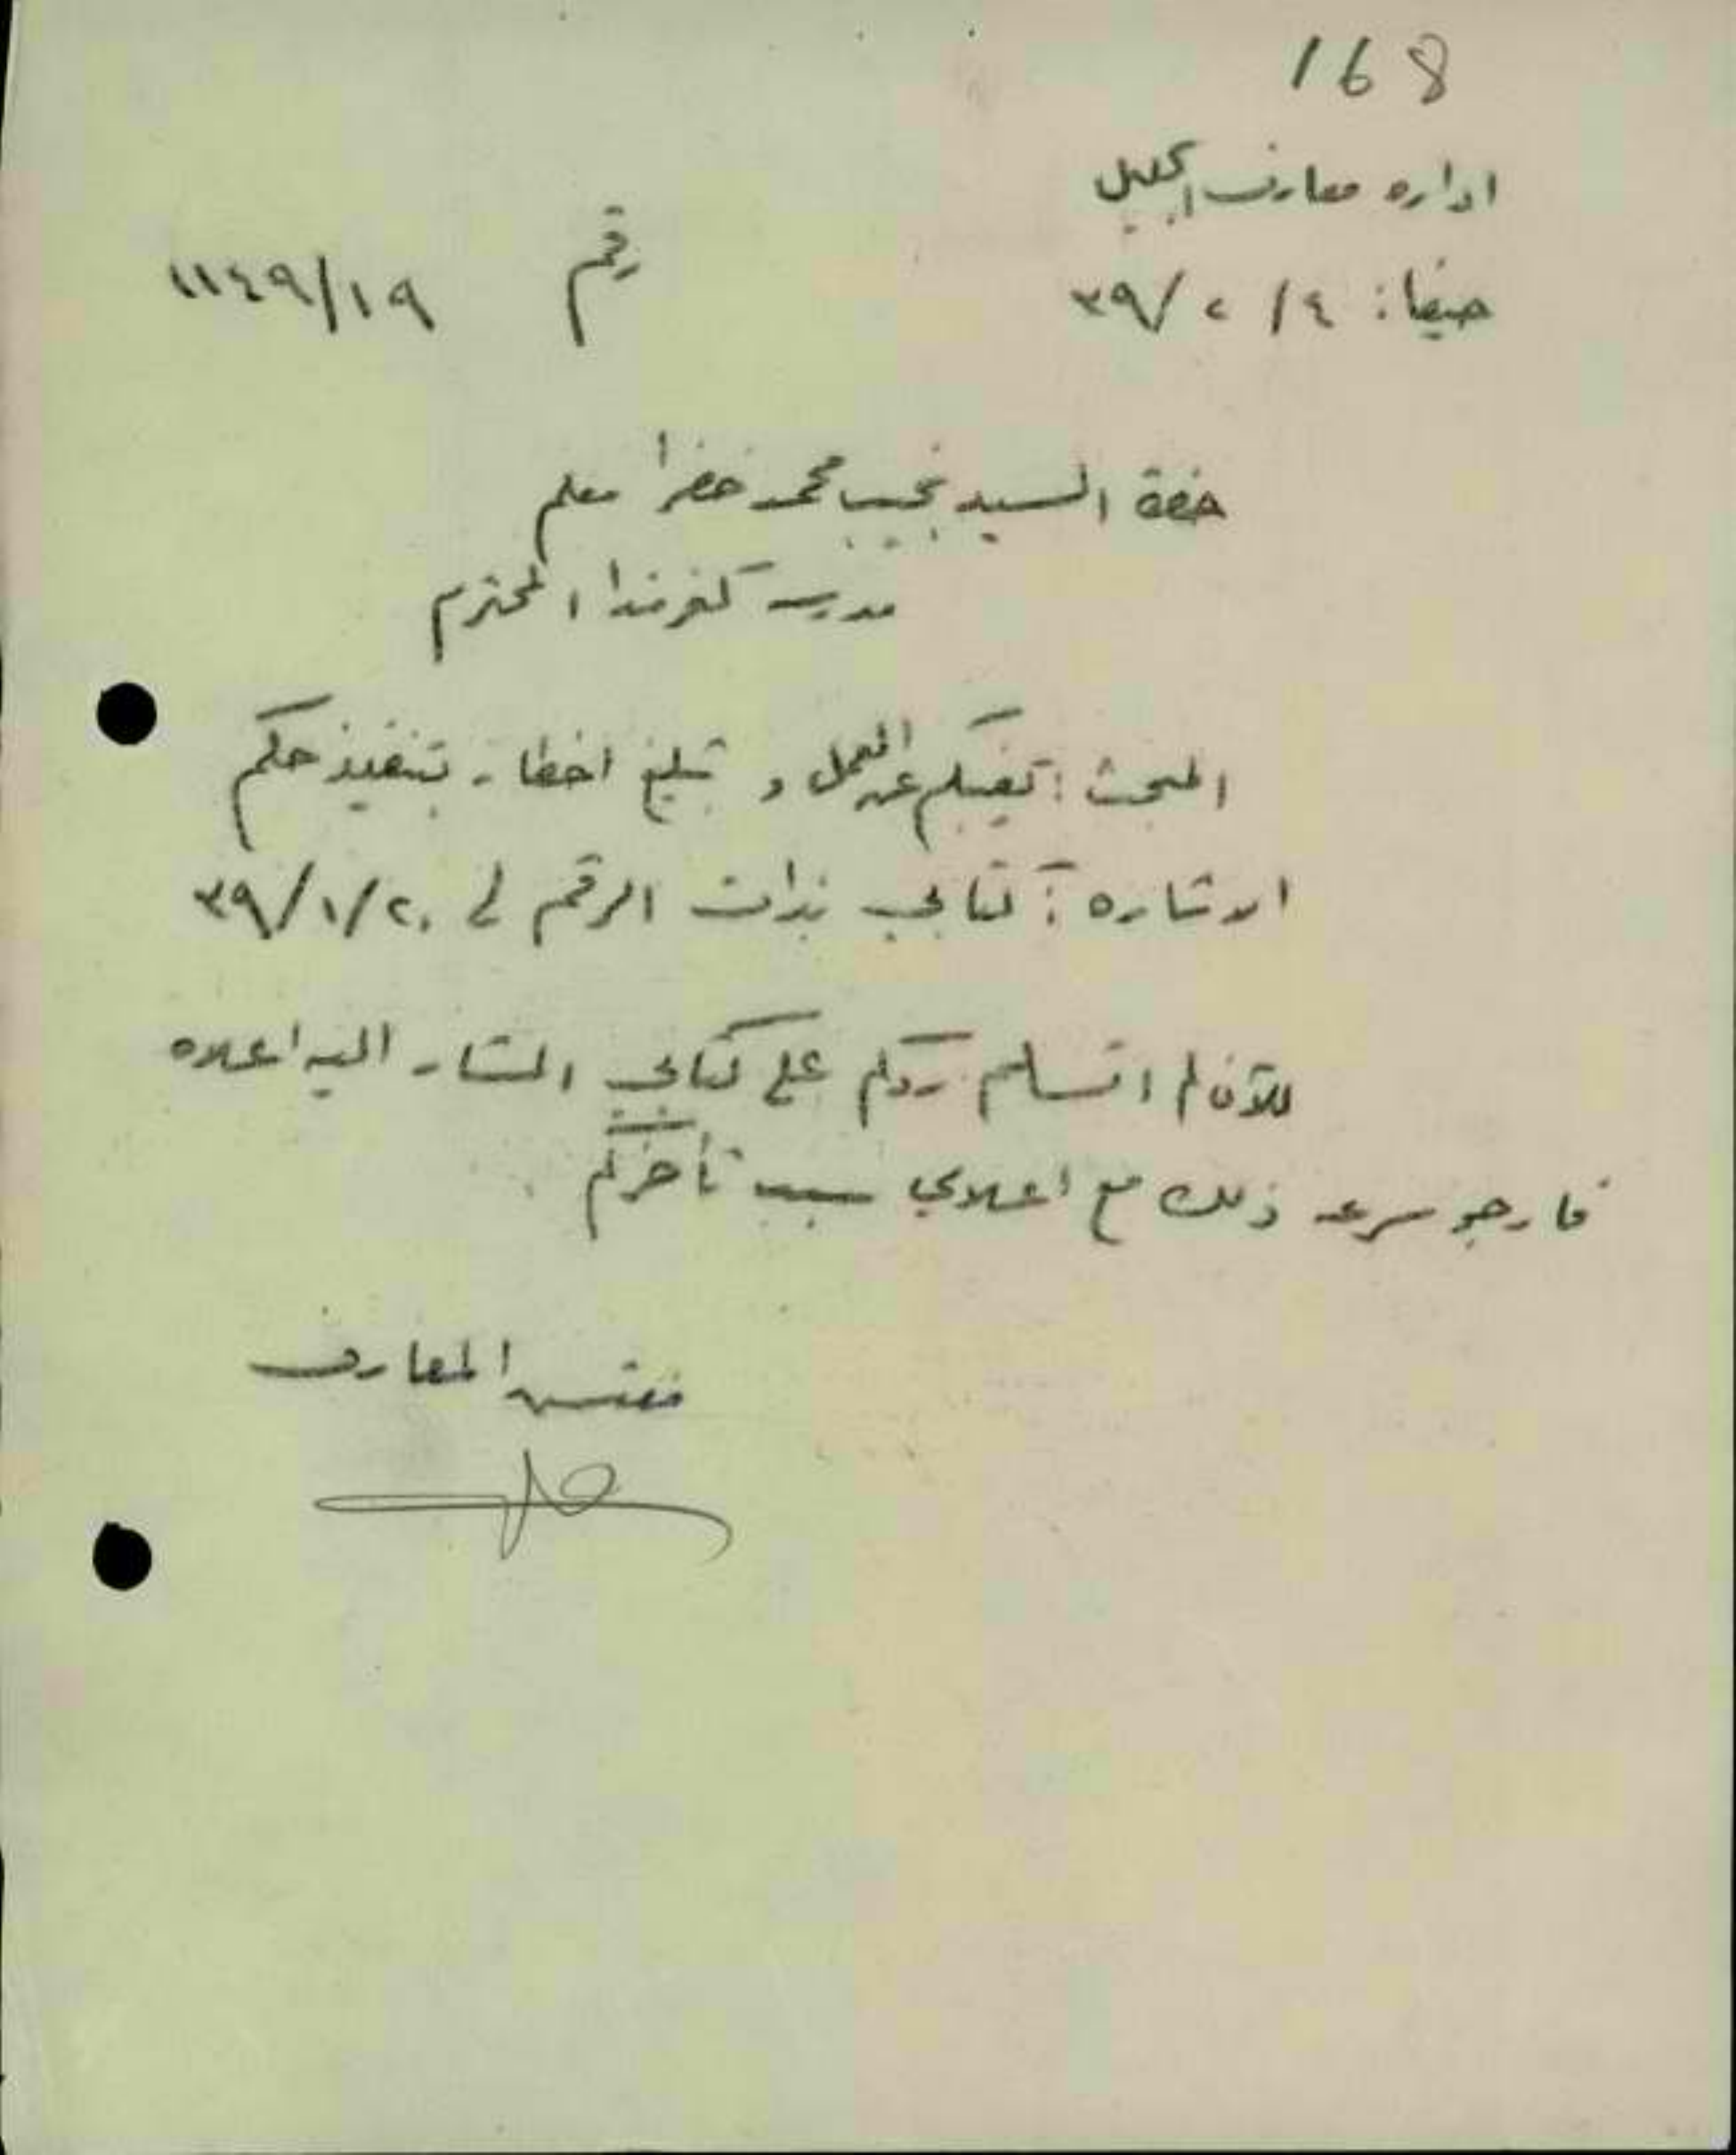 168
اداره معارف الجليل
حيفا: ٤/ ٢ /٣٩
رقم ١١٤٩/١٩
حضرة السيد نجيب محمد خضرا معلم
مدرسة كفرمندا المحترم
المبحث: تغيبكم عن العمل و تبليغ اخطار بتنفيذ حكم
الاشاره: كتابي بذات الرقم في ٣٩/١/٢٠
للآن لم اتسلم ردكم على كتابي المشار اليه اعلاه
فارجو سرعة ذلك مع اعلامي سبب تأخركم
مفتش المعارف